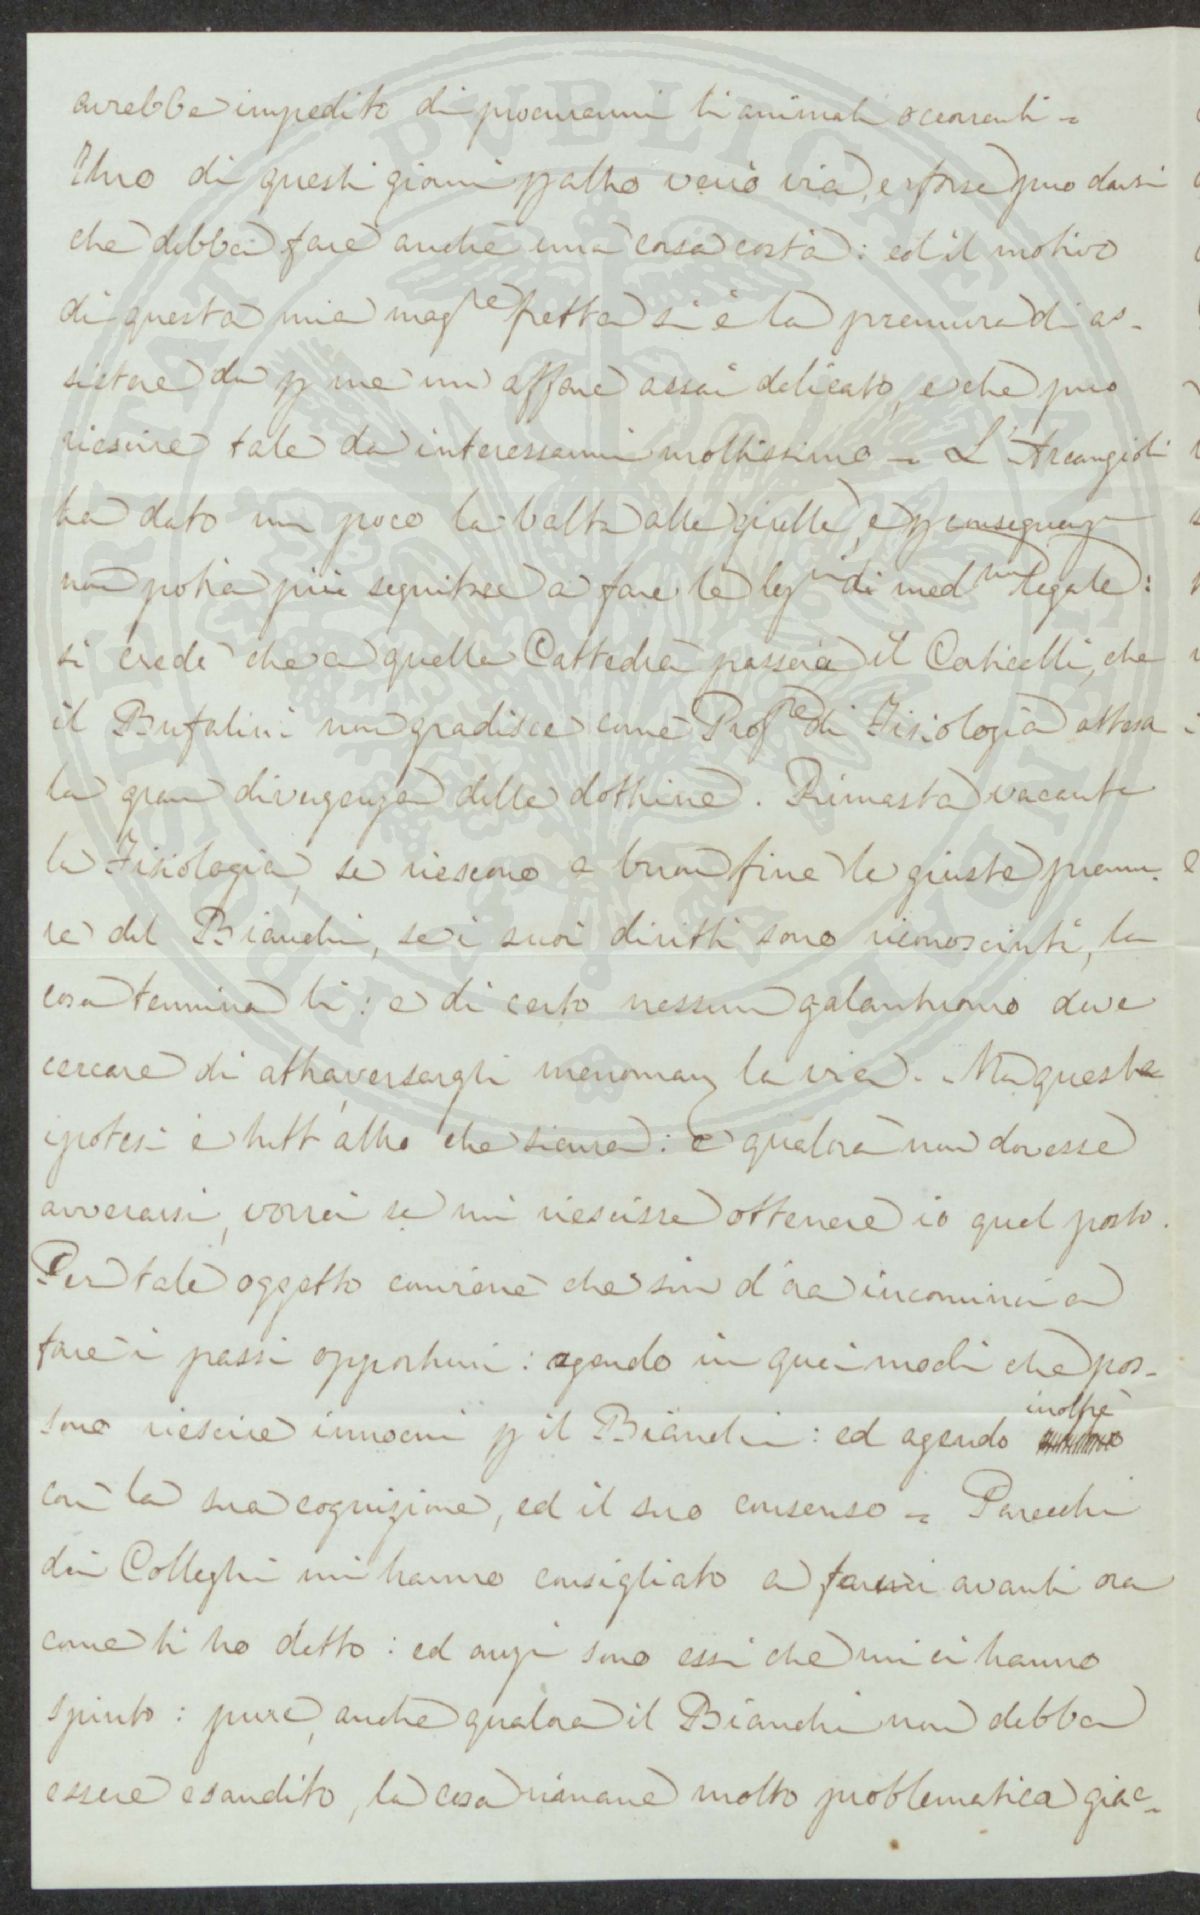 avrebbe impedito di procurarmi li animali occorrenti =
Uno di questi giorni p altro verrò via, e forse può darsi
che debba fare anche una corsa costà: ed il motivo
di questa mia magre fretta si è la premura di as-
sistere da p me un affare assai delicato, e che può
riescire tale da interessarmi moltissimo = L'Arcangioli
ha dato un poco la balta alle girelle, e p conseguenza
non potrà più seguitare a fare le lezni di medna legale:
si crede che a quella Cattedra passerà il Corticelli, che
il Bufalini non gradisce come Profre di Fisiologia attesa
la gran divergenza delle dottrine. Rimasta vacante
la Fisiologia, se riescono a buon fine le giuste premu-
re del Bianchi, se i suoi diritti sono riconosciuti, la
cosa termina lì: e di certo nessun galantuomo deve
cercare di attraversargli menomam la via. Ma questa
ipotesi è tutt'altro che sicura: e qualora non dovesse
avverarsi, vorrei se mi riescisse ottenere io quel posto.
Per tale oggetto conviene che sin d'ora incominci a
fare i passi opportuni: agendo in quei modi che pos-
sono riescire innocui p il Bianchi: ed agendo inoltre
con la sua cognizione, ed il suo consenso = Parecchi
dei Colleghi mi hanno consigliato a farmi avanti ora
come ti ho detto: ed anzi sono essi che mi ci hanno
spinto: pure, anche qualora il Bianchi non debba
essere esaudito, la cosa rimane molto problematica giac-
PUBLICA